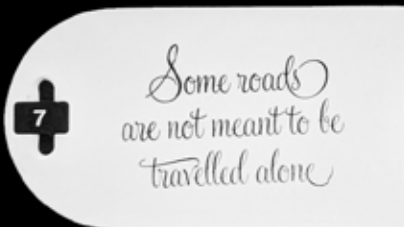 7
Some roads
are not meant to be
travelled alone